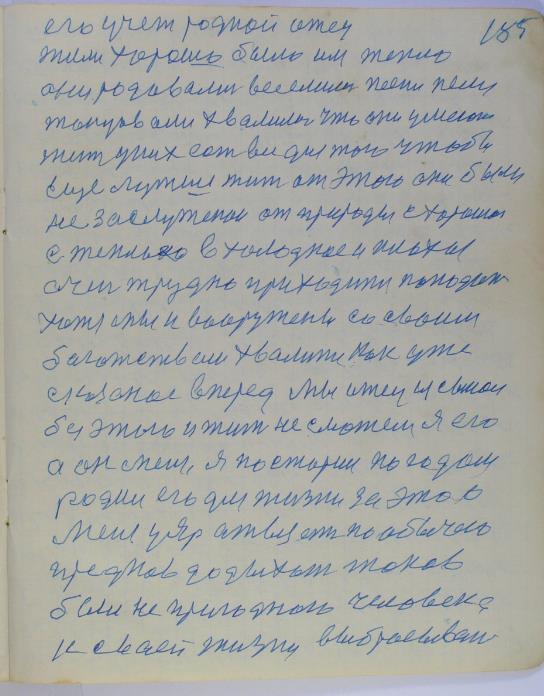 185
его учет родной отец
жили хорошо было им тепло
они родовали веселили песни пели
танцовали хвалили что они умеют
жит у них есть все для того чтобы
еще лутше жит от этого они были
не заслужоной от природы с хорошом
с теплого в холодное и плохое
очен трудно приходити попадат
хотя мы и вооружены со своим
богатством хвалити как уже
сказоное вперед мы отец и сыном
без этого и жит не сможем я его
а он меня, я постарил по годам
родил его для жизни за это в
меня уже по обычаю
предков до дыхат таков
были не пригодного человека
к своей жизни выбрасывают